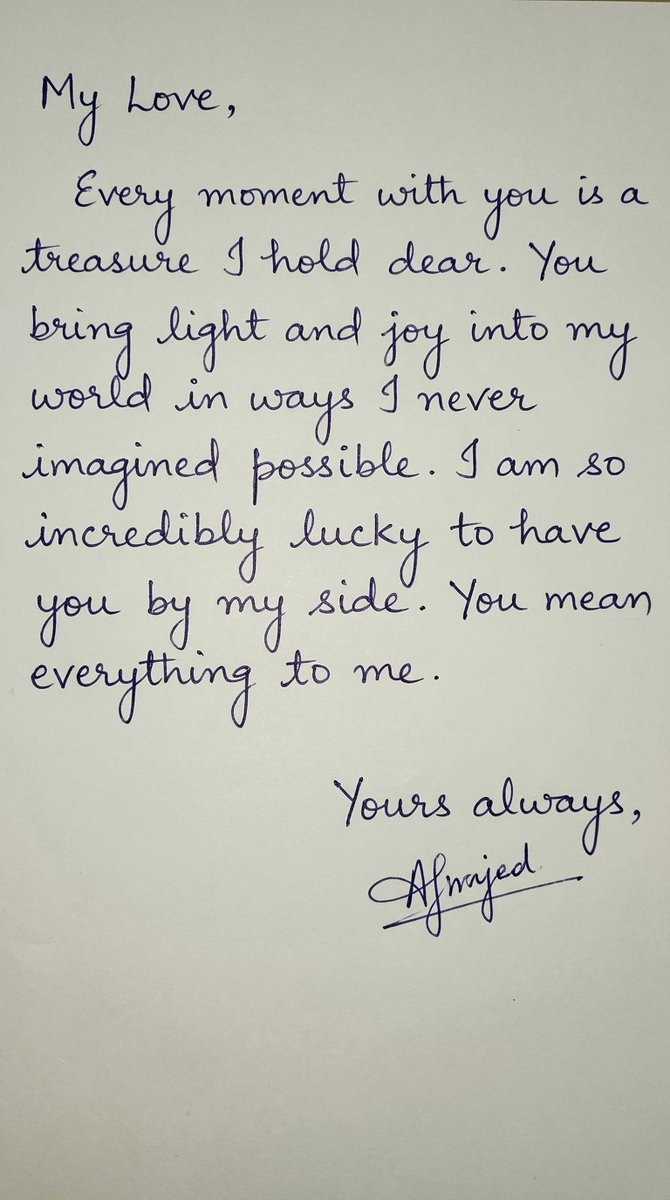 My Love,
Every moment with you is a
treasure I hold dear. You
bring light and joy into my
world in ways I never
imagined possible. I am so
incredibly lucky to have
you by my side. You mean
everything to me.
Yours always,